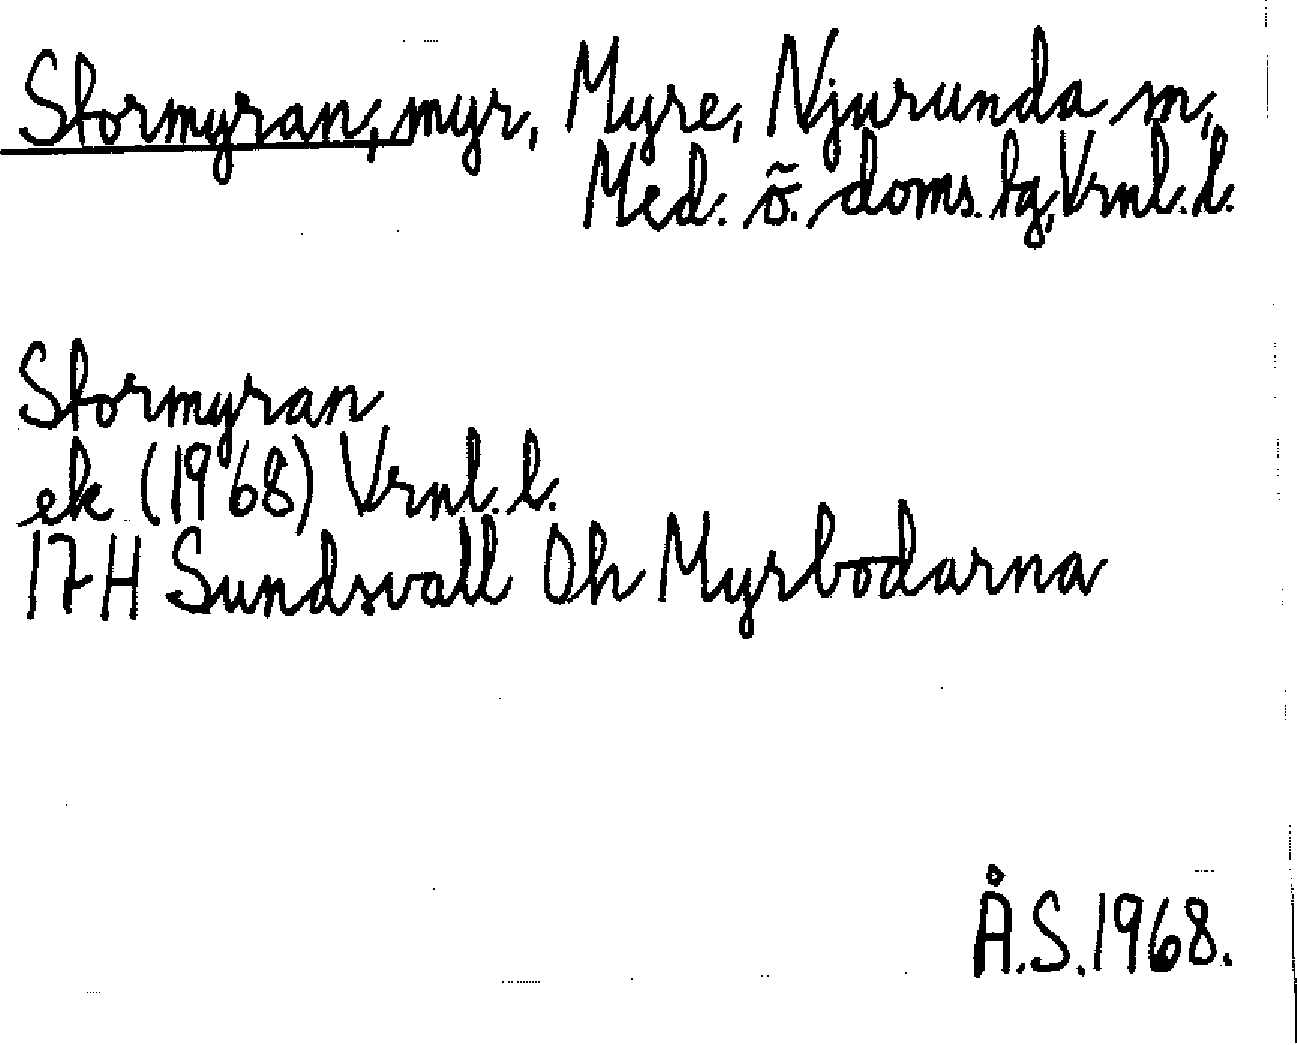 Stormyran, myr, Myre, Njurunda sn,
Med. ö. doms. tg, Vrnl. l.
Stormyran
ek (1968) Vrnl. l.
17H Sundsvall 0h Myrbodarna
Å.S. 1968.